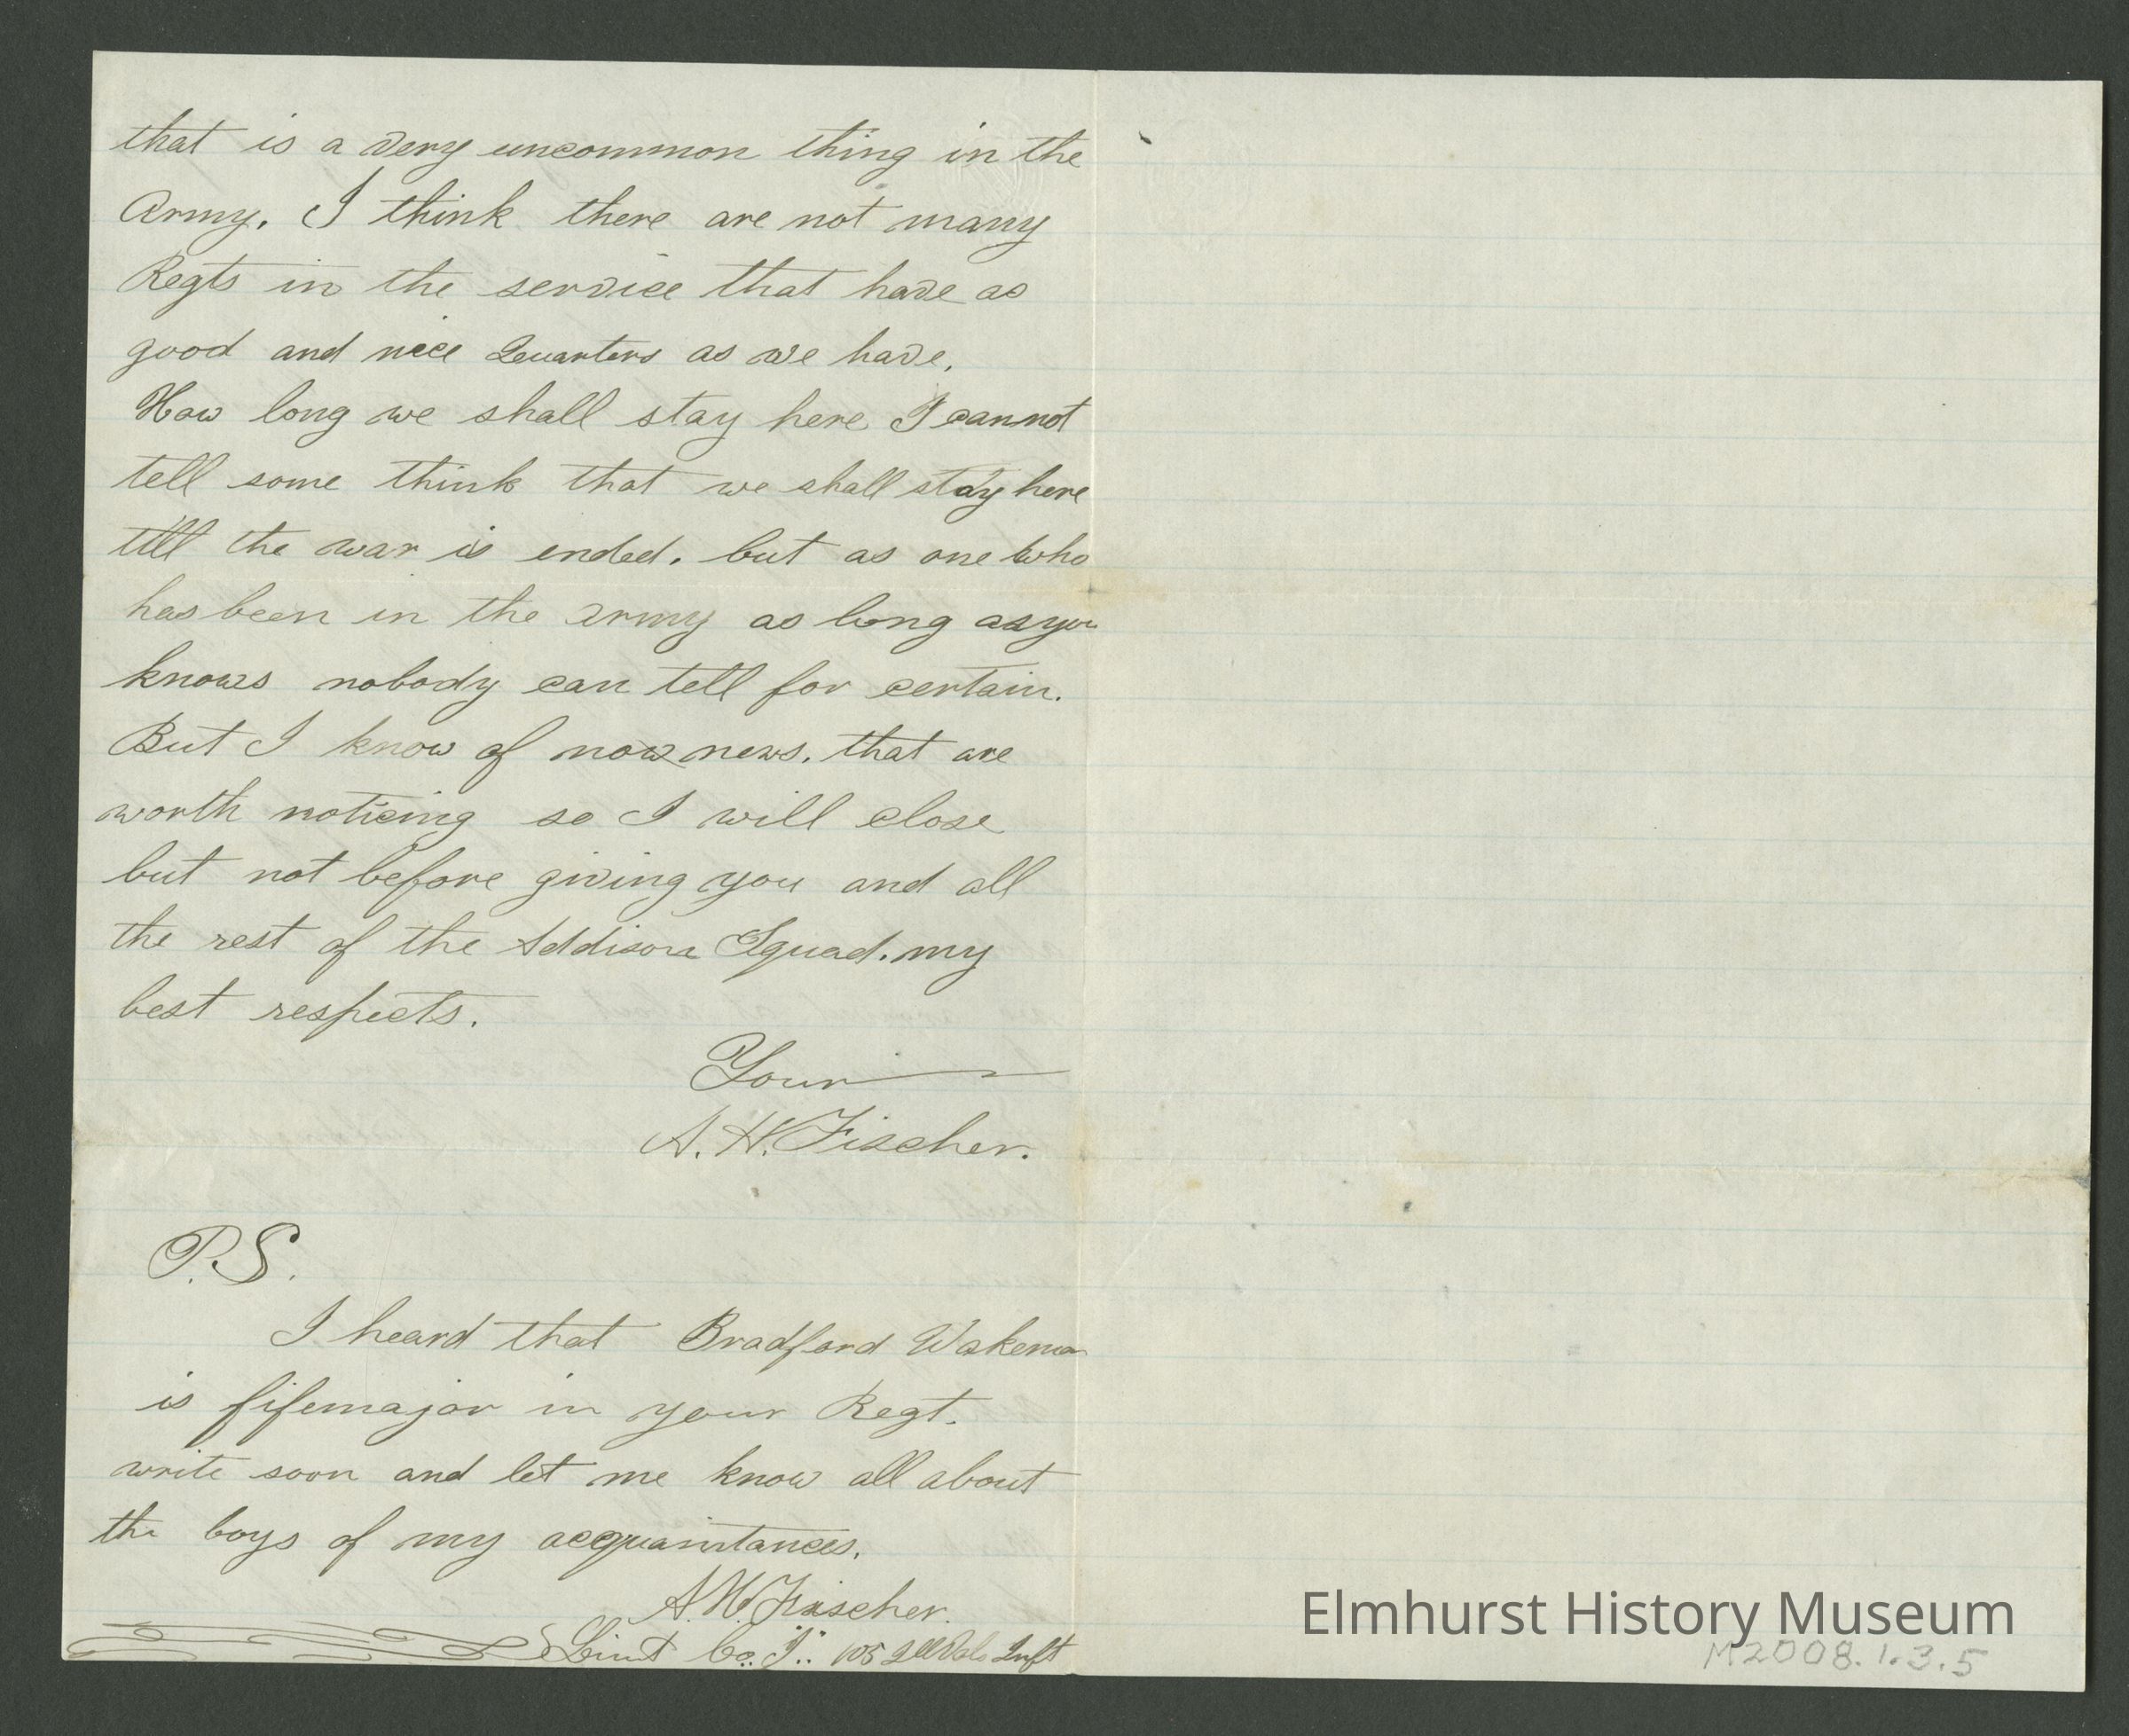 that is a very uncommon thing in the
Army. I think there are not many
Regts in the service that have as
good and nice Quarters as we have.
How long we shall stay here I cannot
tell some think that we shall stay here
till the war is ended. but as one who
has been in the army as long as you
knows nobody can tell for certain.
But I know of now news. that are
worth noticing so I will close
but not before giving you and all
the rest of the Addison Squad. my
best respects.
Your
A. H. Fischer.
P.S.
I heard that Bradford Wakeman
is fifemajor in your Regt.
write soon and let me know all about
the boys of my acquaintances.
A. H. Fischer.
Liut Co. "I". 105 Ill Vols Inft
Elmhurst History Museum
M2008.1.3.5